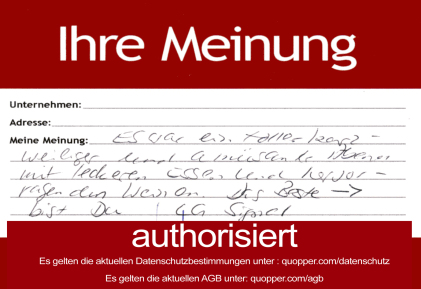 Ihre Meinung
Unternehmen:
Adresse:
Meine Meinung: Es war ein toller kurz-
weiliger und amüsanter Abend
mit leckerem Essen und hervor-
ragenden Weinen. Das Beste →
bist Du !
authorisiert
Es gelten die aktuellen Datenschutzbestimmungen unter : quopper.com/datenschutz
Es gelten die aktuellen AGB unter: quopper.com/agb